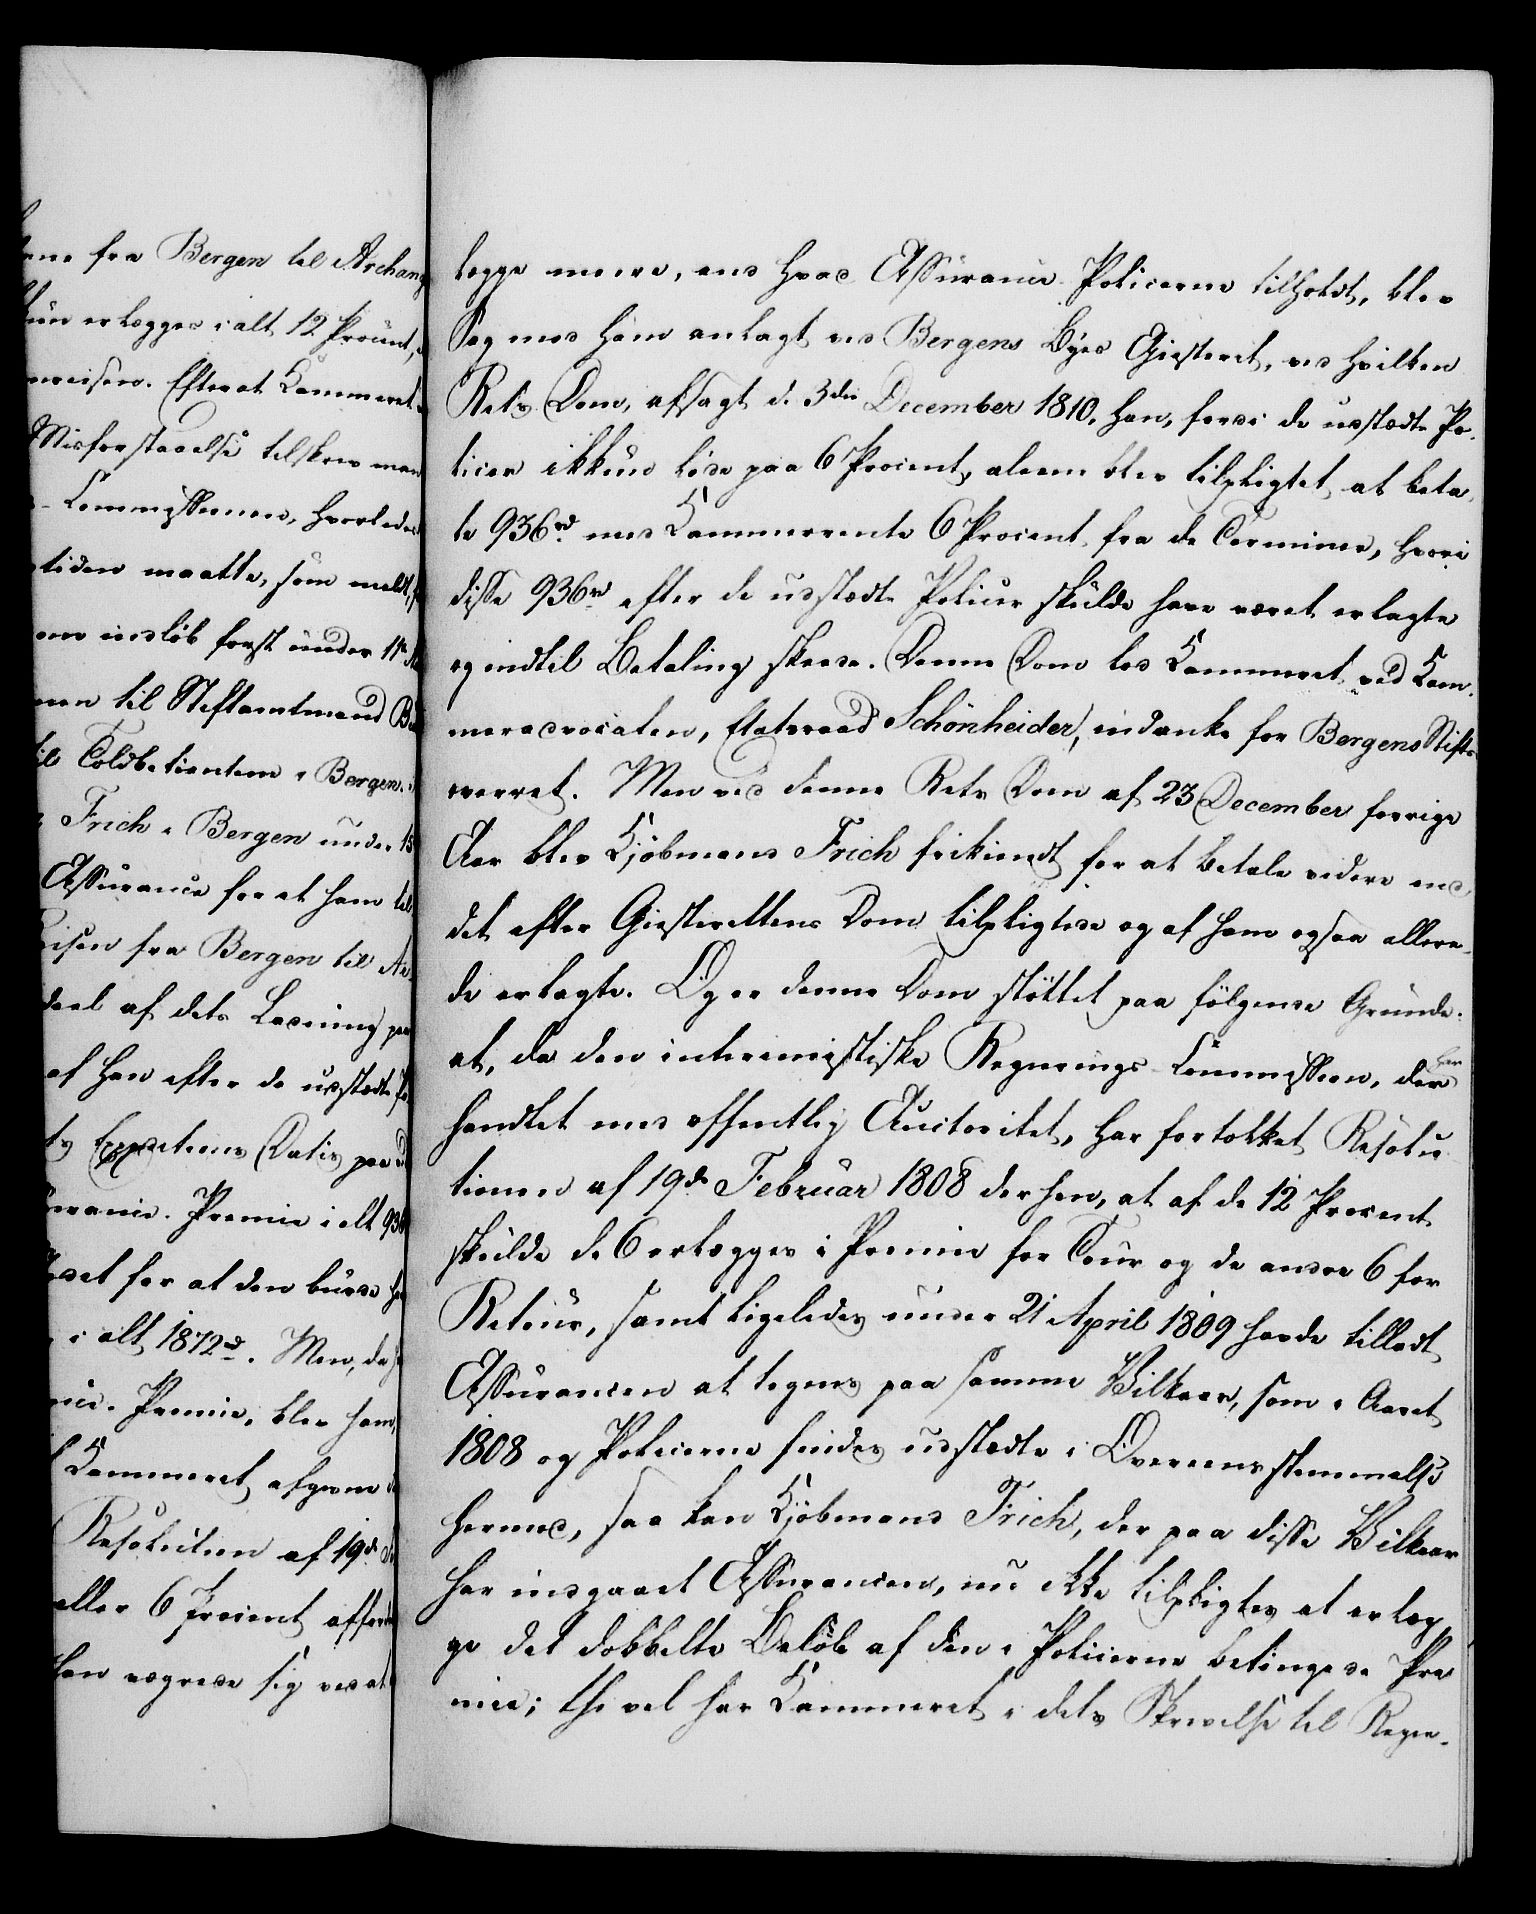 fra Bergen til Archang
erlægges i alt 12 Procent,
Efterat Kammeret
Misforstaaelse tilskrev man
Commissionen, hvorledes
tiden maatte, som meldt,
indløb først under 11te
til Stiftamtmand
Toldbetientene i Bergen.
Frich i Bergen under 15
Assurance for at ham
fra Bergen til Ar
deel af dets Ladning
af han efter de udstædte
Expeditions Datis paa
Premie i alt 936
for at den burde
i alt 1872rd. Men, da
Premie, blev ham,
Kammeret afgivne
Resolution af 19de
eller 6 Procent
han vægrede sig ved at
lægge meere, end hvad Assurance-Policerne tilholdt, blev
Sag mod ham anlagt ved Bergens Byes Giesteret, ved hvilken
Rets Dom, afsagt d. 3die December 1810, han, fordi de udstædte Po-
licer ikkun løde paa 6 Procent, aleene blev tilpligtet at beta-
le 936rd med Kammerrente 6 Procent fra de Terminer, hvori
disse 936rd efter de udstædte Policer skulde have været erlagte
og indtil Betaling skeede. Denne Dom lod Kammeret ved Kam-
meradvocaten, Etatsraad Schönheider, indanke for Bergens Stifts-
overret. Men ved denne Rets Dom af 23 December forrige
Aar blev Kjøbmand Frich frikiendt for at betale videre end
det efter Giesterettens Dom tilpligtede og af ham ogsaa allere-
de erlagte. Og er denne Dom støttet paa følgende Grunde:
at, da den interimistiske Regierings-Commission, der har
handlet med offentlig Auctoritet, har fortolket Resolu-
tionen af 19de Februar 1808 derhen, at af de 12 Procent
skulde de 6 erlægges i Premie for Tour og de andre 6 for
Retour, samt ligeledes under 21 April 1809 havde tilladt
Assurancen at tegnes paa samme Vilkaar, som i Aaret
1808 og Policerne findes udstædte i Overeensstemmelse
hermed, saa kan Kjøbmand Frich, der paa disse Vilkaar
har indgaaet Assurancen, nu ikke tilpligtes at erlæg-
ge det dobbelte Beløb af den i Policerne betingede Pre-
mie; thi vel har Kammeret i dets Skrivelse til Regie-